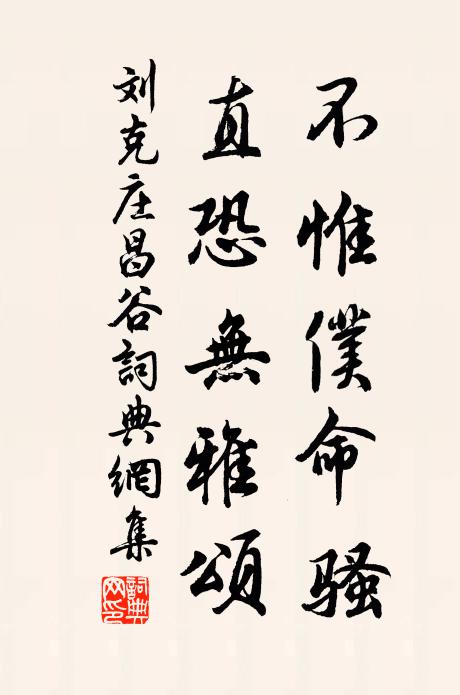 不惟僕命騷
直恐無雅頌
刘克庄昌谷詞典網集
詞典